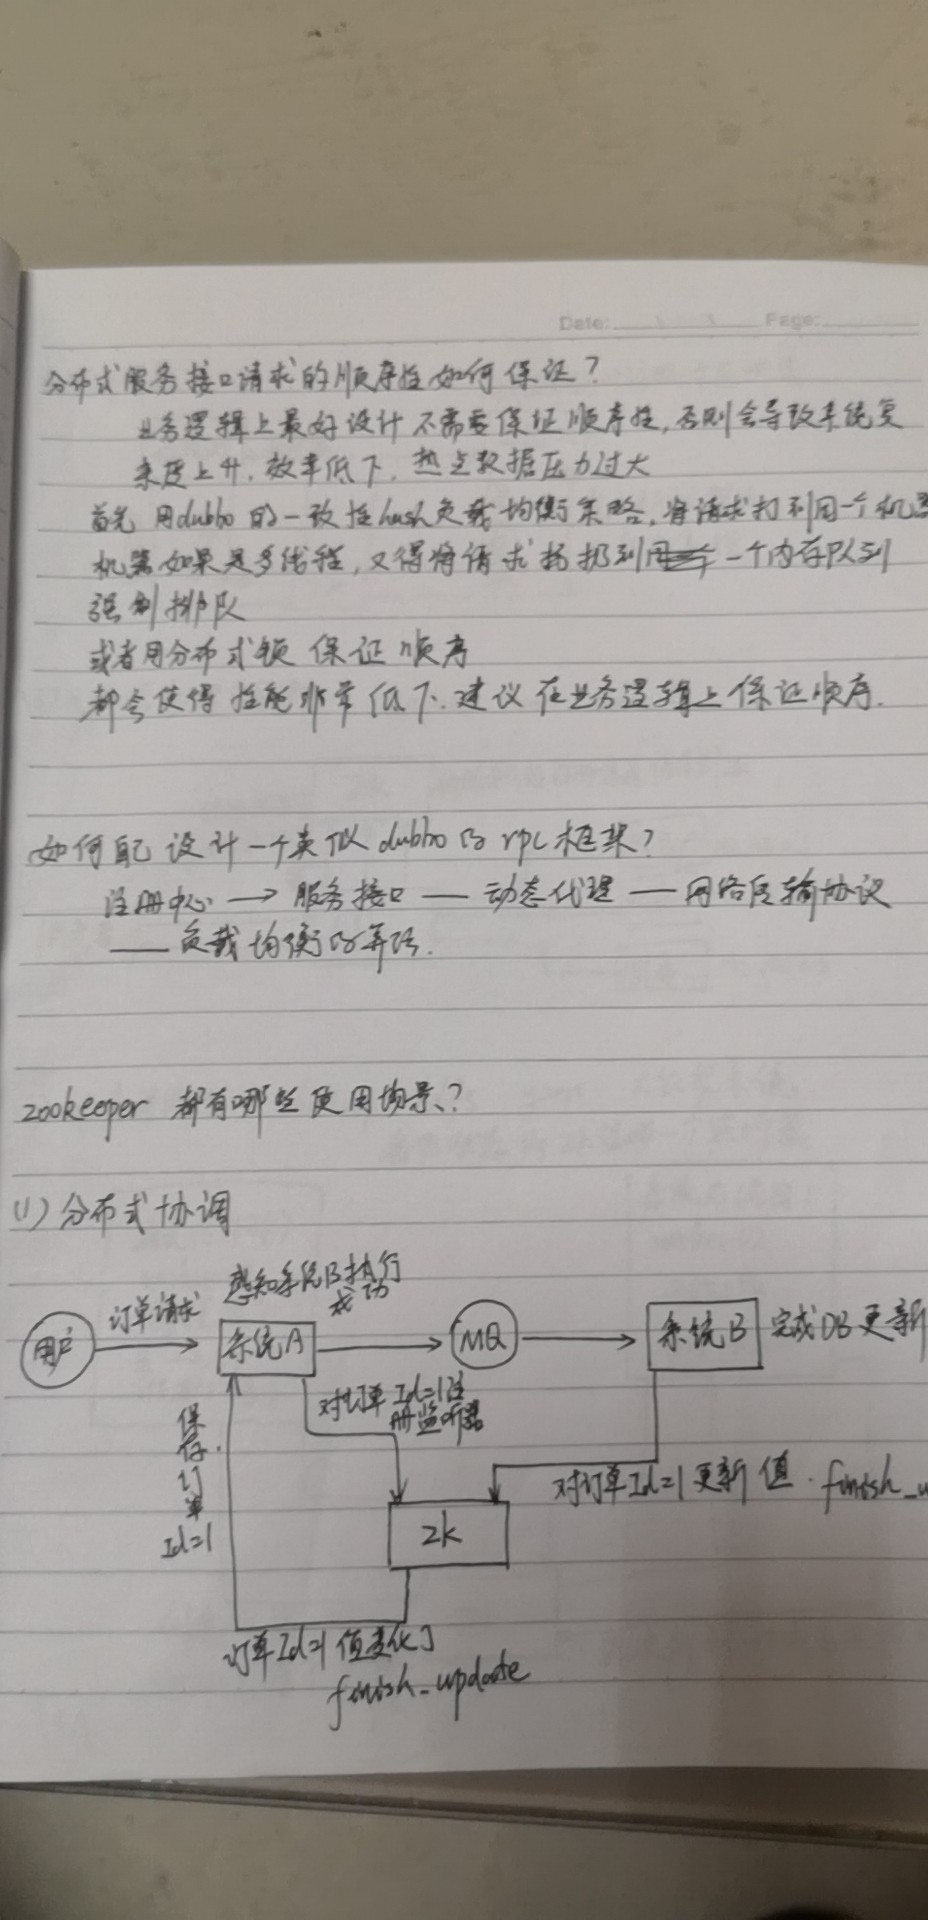 Date: Page:
分布式服务接口请求的顺序性如何保证?
业务逻辑上最好设计不需要保证顺序性,否则会导致系统复
杂度上升,效率低下,热点数据压力过大
首先用dubbo的一致性hash负载均衡策略,将请求打到同一个机器
机器如果是多线程,又得将请求扔到一个内存队列
强制排队
或者用分布式锁保证顺序
都会使得性能非常低下.建议在业务逻辑上保证顺序.
如何自己设计一个类似dubbo的rpc框架?
注册中心 → 服务接口 — 动态代理 — 网络传输协议
— 负载均衡的算法.
zookeeper 都有哪些使用场景?
(1) 分布式协调
感知系统B执行
成功
用户 订单请求 系统A MQ 系统B 完成DB更新
对订单 Id=1注
册监听器
保存订单Id=1
对订单Id=1更新值.
zk
订单Id=1值变化了
finish_update